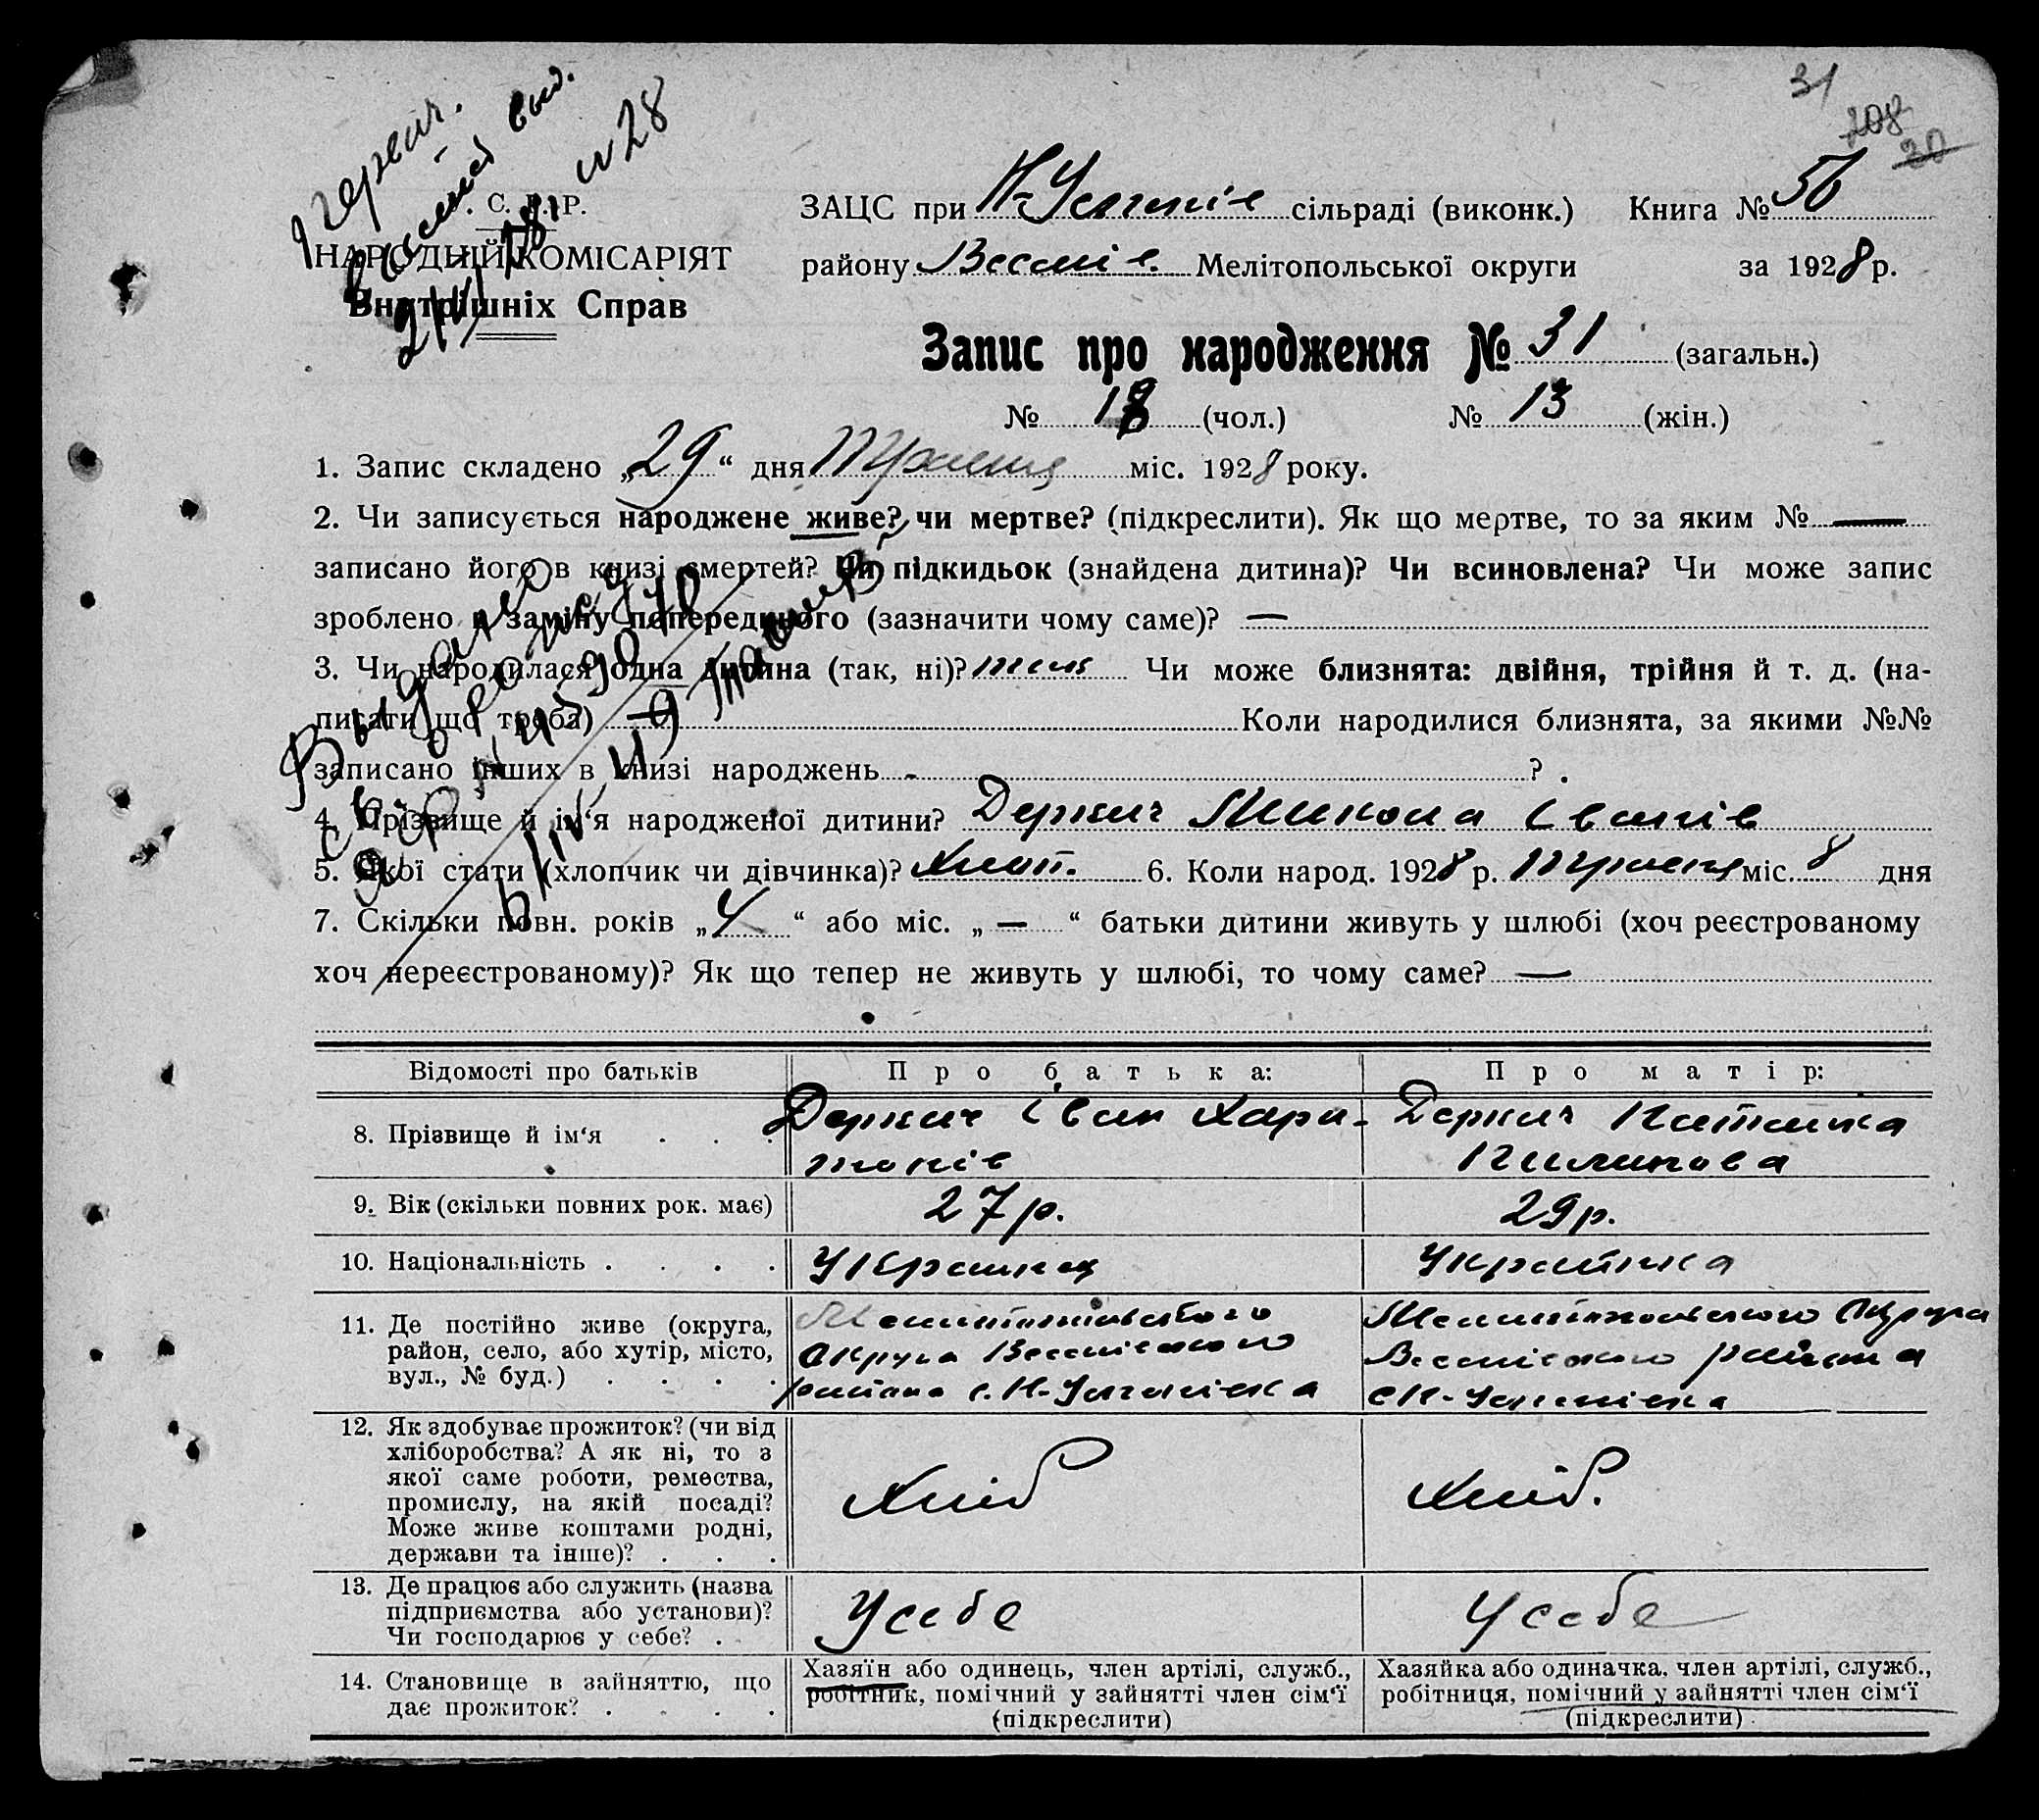 31
108
20
№ 28
С. Р. Р.
НАРОДНІЙ КОМІСАРІЯТ
Внутрішніх Справ
ЗАЦС при сільраді (виконк.) Книга № 56
району Веселів. Мелітопольської округи за 1928 р.
Запис про народження № 31 (загальн.)
№ 18 (чол.) № 13 (жін.)
1. Запис складено „29“ дня Травня міс. 1928 року.
2. Чи записується народжене живе? чи мертве? (підкреслити). Як що мертве, то за яким № —
записано його в книзі смертей? Чи підкидьок (знайдена дитина)? Чи всиновлена? Чи може запис
зроблено в заміну попереднього (зазначити чому саме)? —
3. Чи народилася одна дитина (так, ні)? так Чи може близнята: двійня, трійня й т. д. (на-
писати що треба) — Коли народилися близнята, за якими №№
записано інших в книзі народжень - ?
Выдано
4. Прізвище й ім‘я народженої дитини? Деркач Микола Іванів
5. Якої стати (хлопчик чи дівчинка)? Хлоп. 6. Коли народ. 1928 р. Травня міс. 8 дня
7. Скільки повн. років „4“ або міс. „—“ батьки дитини живуть у шлюбі (хоч реєстрованому
хоч нереєстрованому)? Як що тепер не живуть у шлюбі, то чому саме? —
Відомості про батьків Про батька: Про матір:
8. Прізвище й ім‘я . . . Деркач Іван Хари- Деркач Наталка
тонів Пилипова
9. Вік (скільки повних рок. має) 27 р. 29 р.
10. Національність . . . . Українец Українка
11. Де постійно живе (округа,
район, село, або хутір, місто,
вул., № буд.) . . . .
Мелітопільського
Округа Веселівського
района с. Н-Успенівка
Мелітопольского Округа
Веселівського района
с Н-Успенівка
12. Як здобуває прожиток? (чи від
хліборобства? А як ні, то з
якої саме роботи, ремества,
промислу, на якій посаді?
Може живе коштами родні,
держави та інше)? . . .
Хліб Хліб.
13. Де працює або служить (назва
підприємства або установи)?
Чи господарює у себе? .
У себе У себе
14. Становище в зайняттю, що
дає прожиток? . . . .
Хазяїн або одинець, член артілі, служб.,
робітник, помічний у зайнятті член сім‘ї
(підкреслити)
Хазяйка або одиначка, член артілі, служб.,
робітниця, помічний у зайнятті член сім‘ї
(підкреслити)